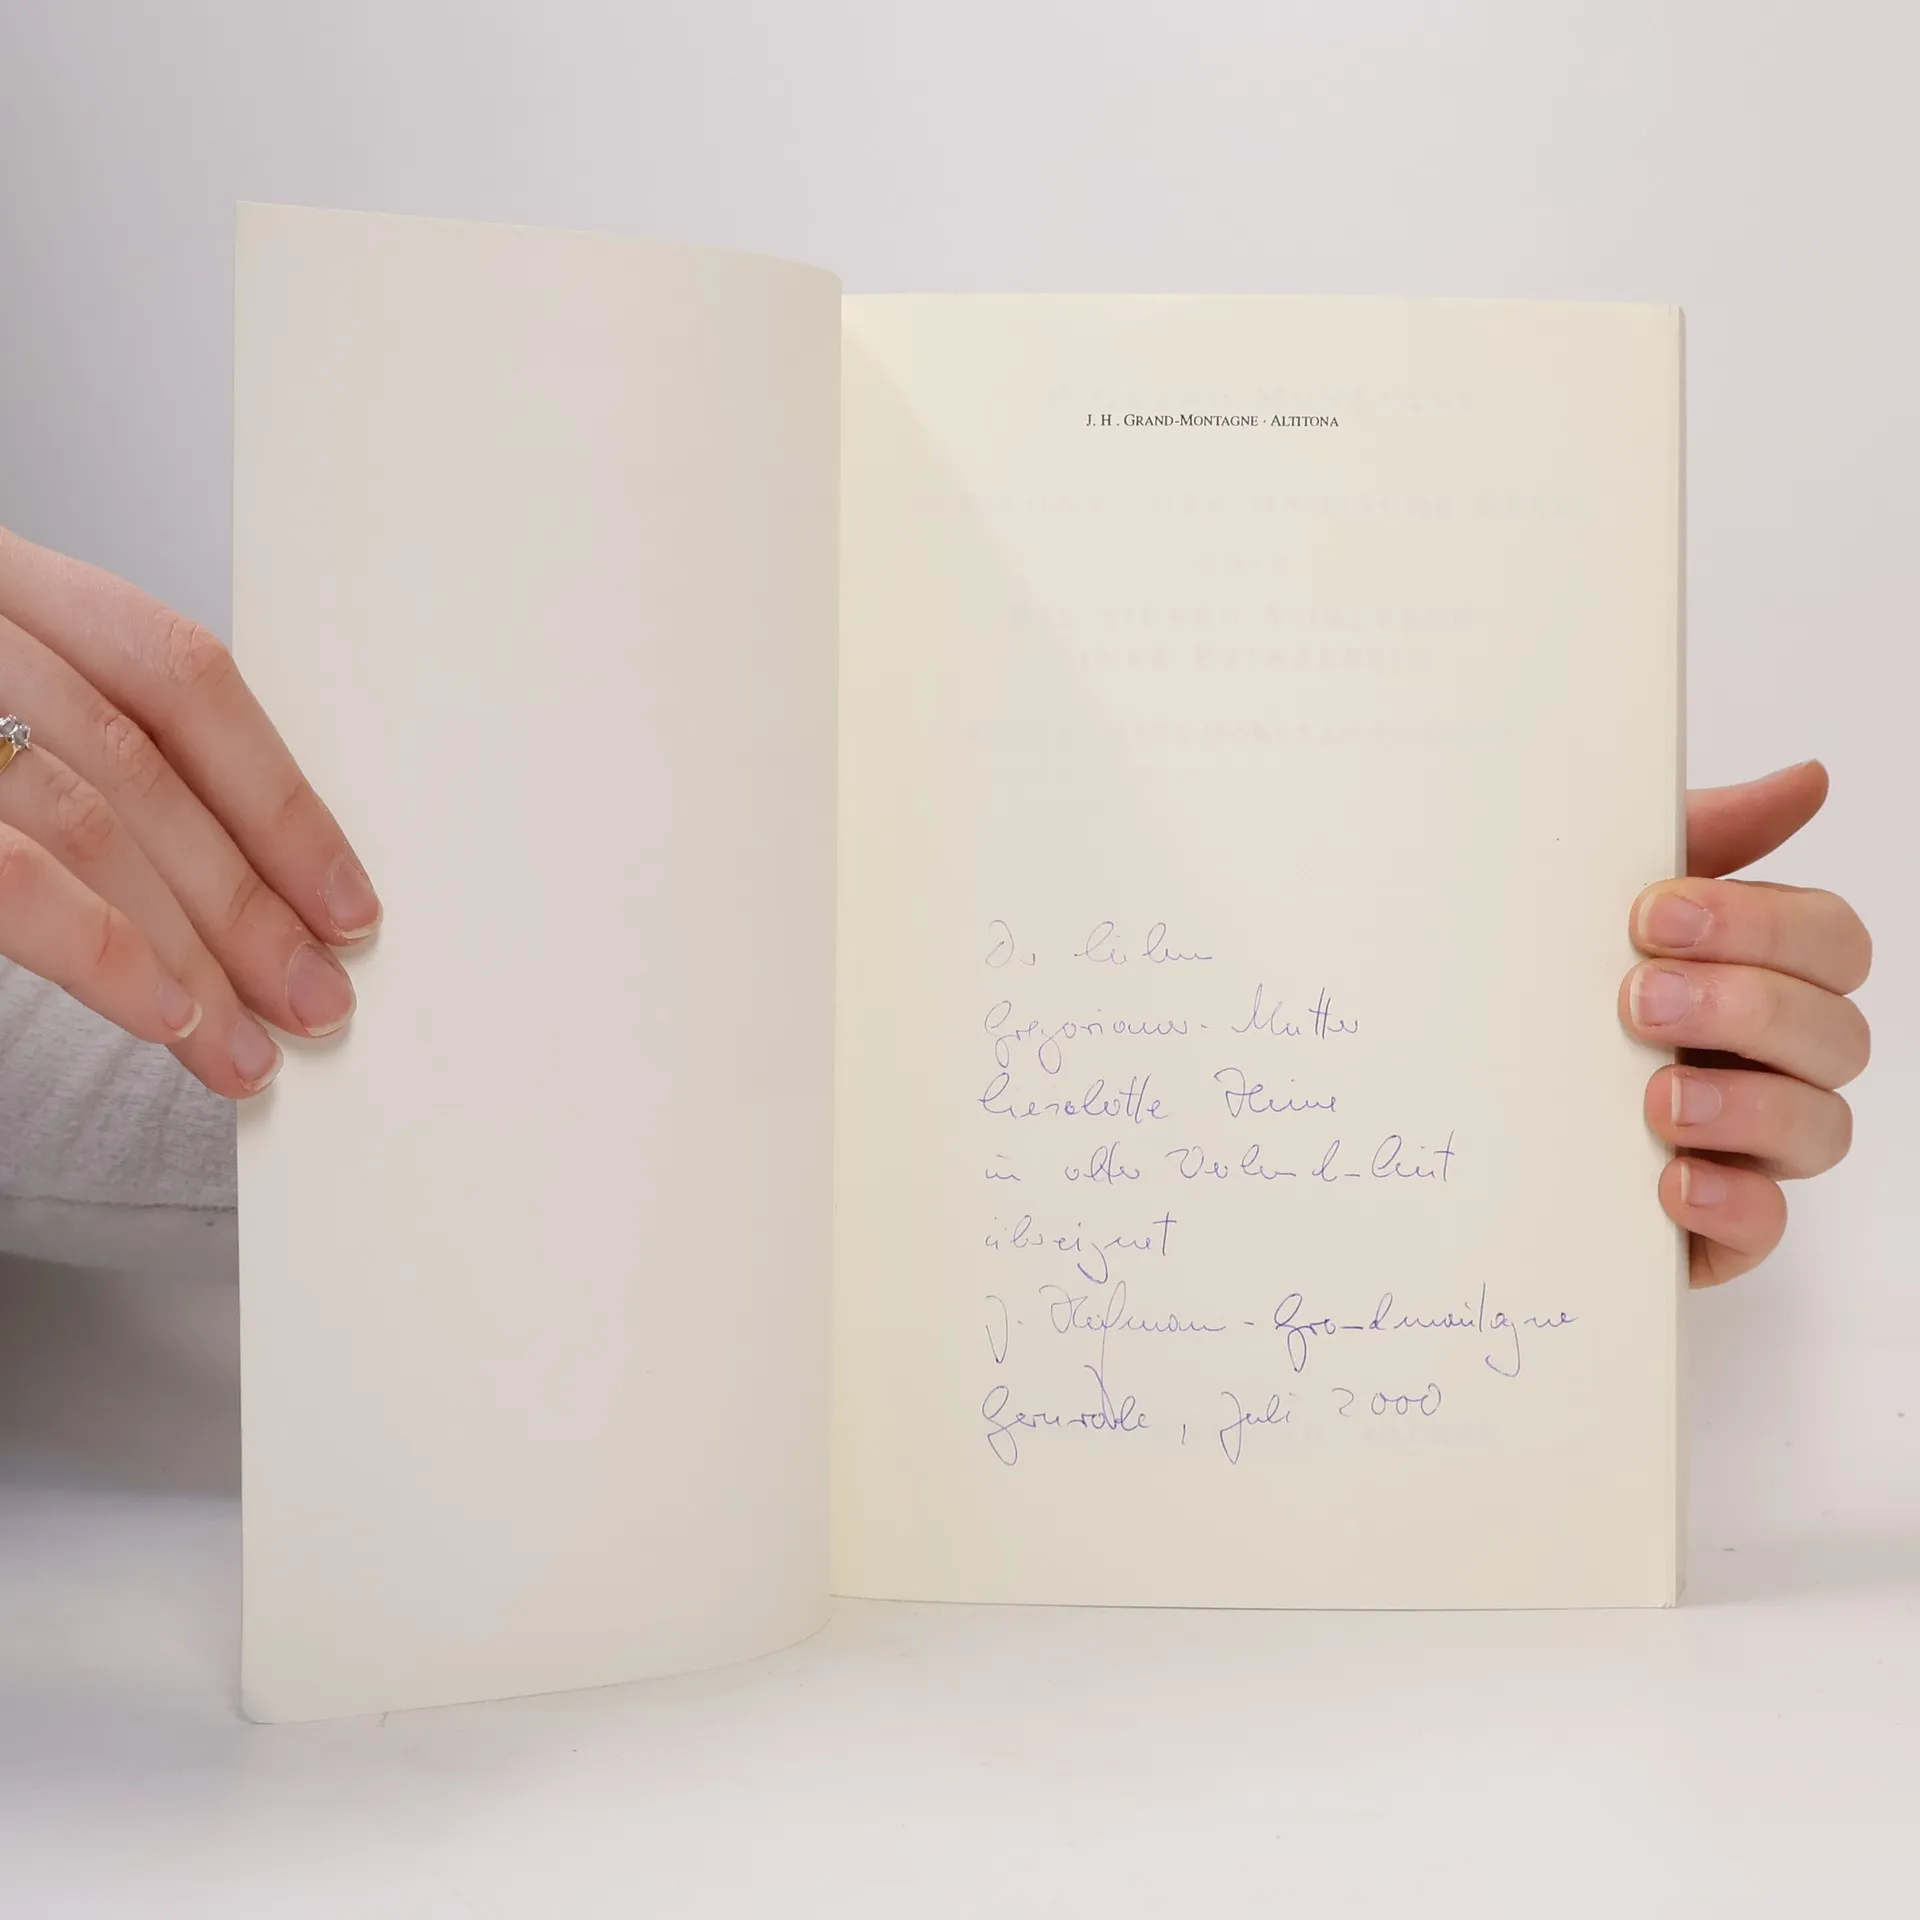 J. H. GRAND-MONTAGNE · ALTITONA
Der lieben
Gregorianer-Mutter
Lieselotte Heine
in alter Verbundenheit
übereignet
J. Hofmann-Grandmontagne
Gernrode, Juli 2000